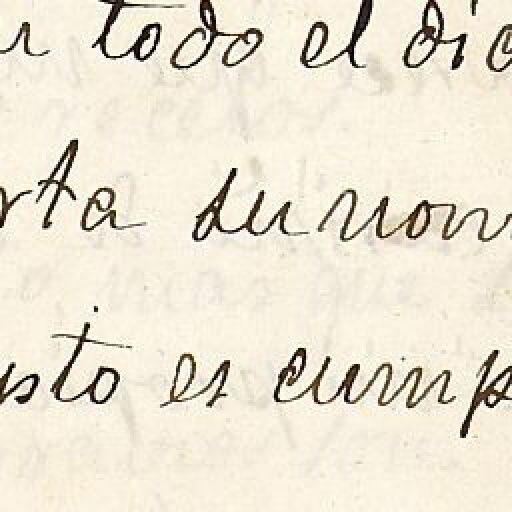 r todo el dia
rta su nom
usto es cump